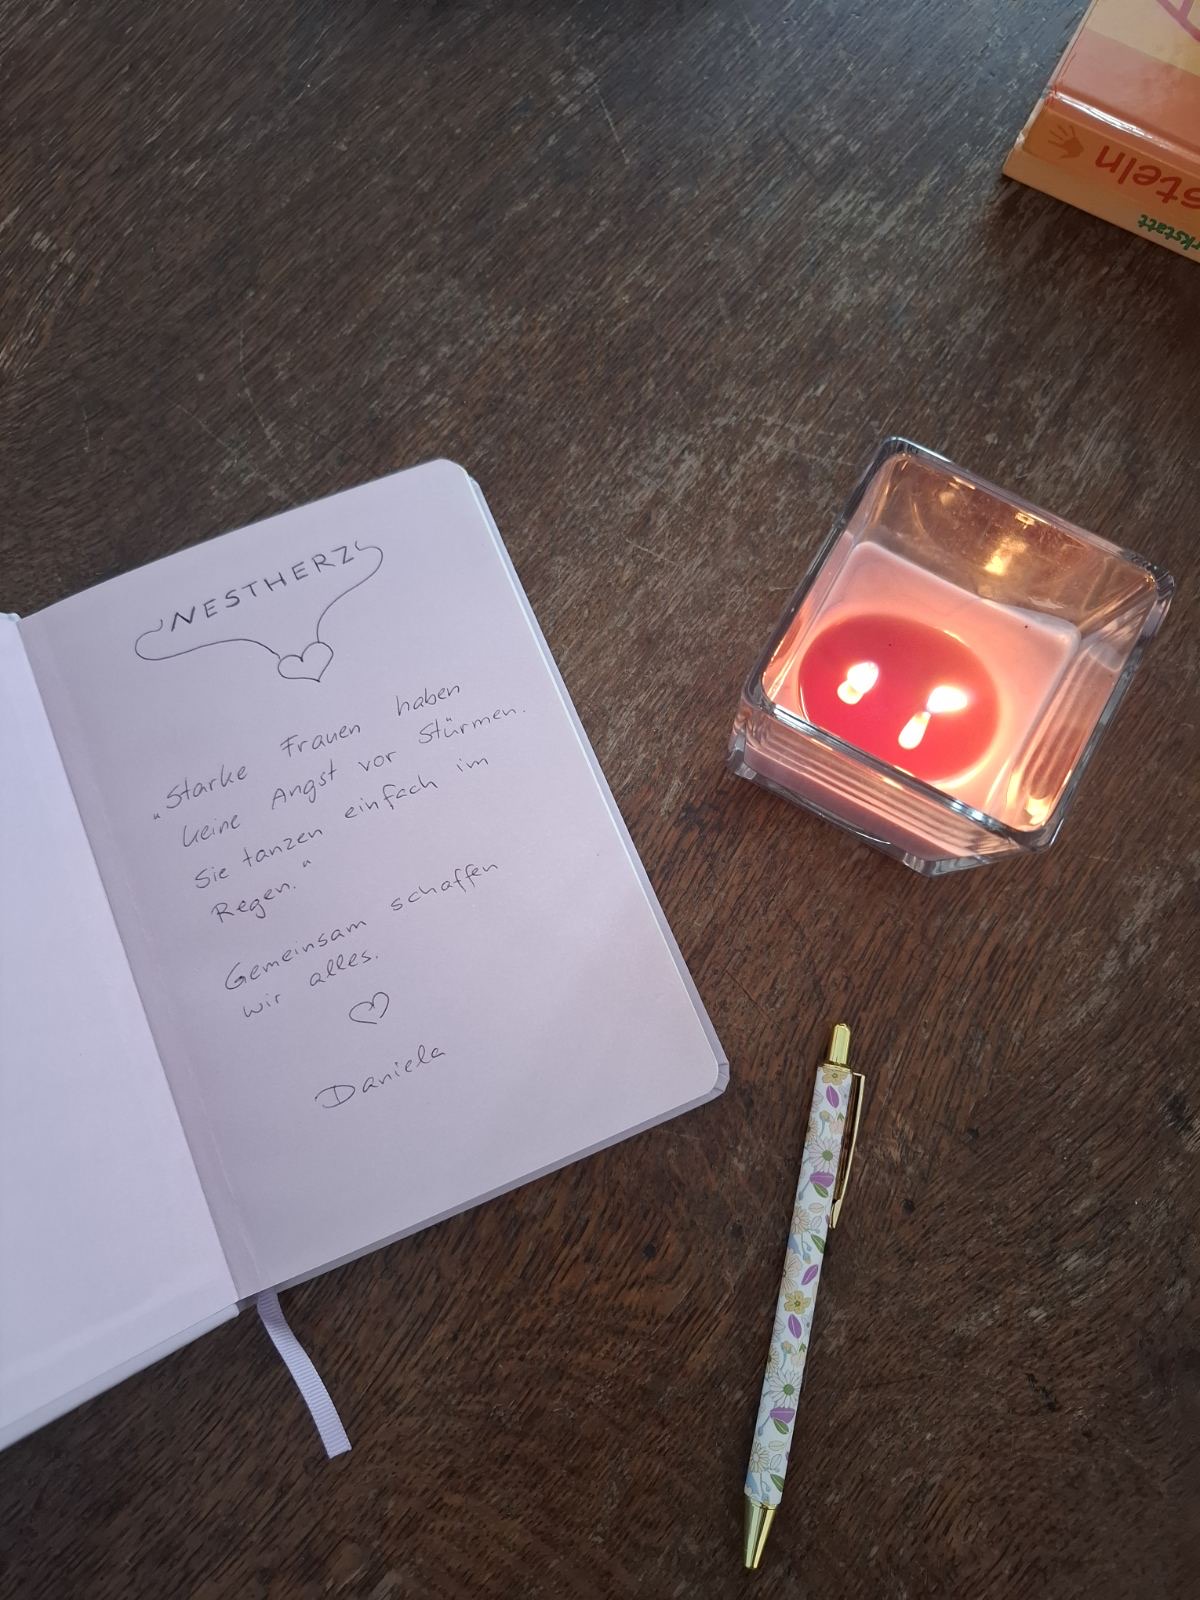 NESTHERZ
„Starke Frauen haben
keine Angst vor Stürmen.
Sie tanzen einfach im
Regen."
Gemeinsam schaffen
wir alles.
Daniela
steln
rkstatt